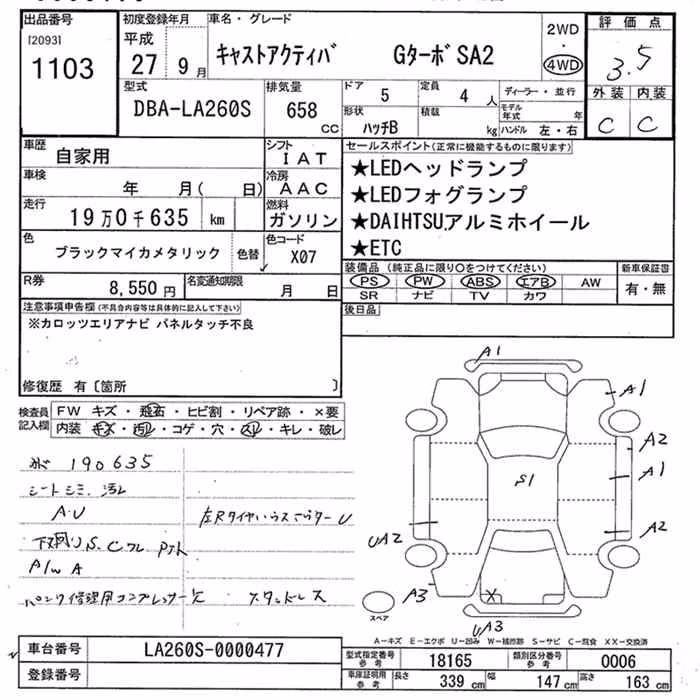 出品番号
[2093]
1103
初度登録年月
平成
27年 9月
車名・グレード
キャストアクティバ GターボSA2
2WD
・
4WD
評価点
3.5
外装 内装
C C
型式
DBA-LA260S
排気量
658
CC
ドア 5
定員 4 人
形状 ハッチB
積載 kg
ディーラー・並行
モデル年式 年
ハンドル 左・右
車歴
自家用
シフト
IAT
車検
年 月( 日)
冷房
AAC
走行
19万0千635 km
燃料
ガソリン
色
ブラックマイカメタリック
色替
色コード
X07
R券
8,550円
名変通知期限
月 日
セールスポイント(正常に機能するものに限ります)
★LEDヘッドランプ
★LEDフォグランプ
★DAIHTSU.アルミホイール
★ETC
装備品 (純正品に限り○をつけてください)
PS PW ABS エアB AW
SR ナビ TV カワ
新車保証書
有・無
後日品
注意事項申告欄(不具合内容等は具体的に記入して下さい)
※カロッツエリアナビ パネルタッチ不良
修復歴 有〔箇所 〕
検査員
記入欄
FW キズ・飛石・ヒビ割・リペア跡・×要
内装 キズ・汚れ・コゲ・穴・スレ・キレ・破レ
190635
シートシミ、汚レ
A.U
下廻りS.C
A/W A
パンク修理用コンプレッサー欠
A1
A1
A2
A1
S1
A2
UA2
A3
A3
X
UA3
スペア
A-キズ E-エクボ U-凹み W-補修跡 S-サビ C-腐食 XX-交換済
車台番号
LA260S-0000477
登録番号
型式指定番号
参考
18165
類別区分番号
参考
0006
車庫証明用
参考
長さ 339 cm
幅 147 cm
高さ 163 cm